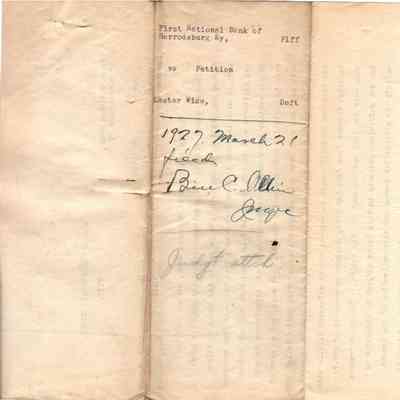 First National Bank of
Harrodsburg Ky, Plff
vs Petition
Lester Wise, Deft
1927. March 21
filed
Bill C. Allin
Judgt